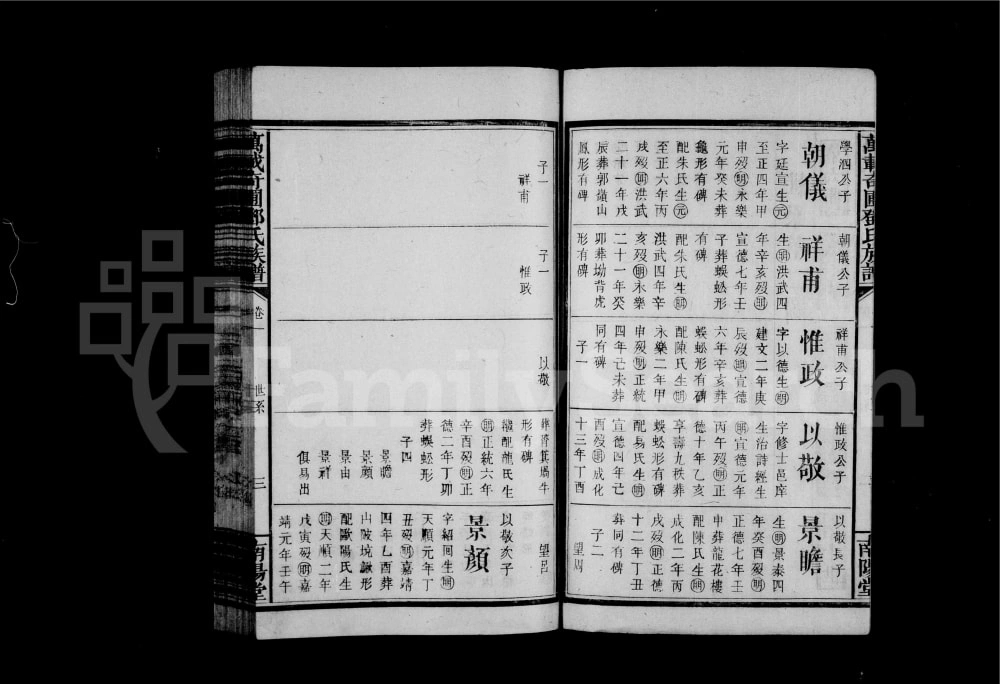 學泗公子
朝儀
字廷宣生元
至正四年甲
申歿明永樂
元年癸未葬
龜形有碑
配朱氏生元
至正六年丙
戌歿明洪武
二十一年戊
辰葬郭山
鳳形有碑
子一
祥甫
朝儀公子
祥甫
生明洪武四
年辛亥歿明
宣德七年壬
子葬蜈蚣形
有碑
配朱氏生明
洪武四年辛
亥歿明永樂
二十一年癸
卯葬坳背虎
形有碑
子一
惟政
祥甫公子
惟政
字以德生明
建文二年庚
辰歿明宣德
六年辛亥葬
蜈蚣形有碑
配陳氏生明
永樂二年甲
申歿明正統
四年己未葬
同有碑
子一
以敬
惟政公子
以敬
字修士邑庠
生治詩經生
明宣德元年
丙午歿明正
德十年乙亥
享壽九秩葬
蜈蚣形有碑
配易氏生明
宣德四年己
酉歿明成化
十三年丁酉
葬牛
形有碑
繼配龍氏生
明正統六年
辛酉歿明正
德二年丁卯
葬蜈蚣形
子四
景瞻
景顏
景由
景祥
俱易出
以敬長子
景瞻
生明景泰四
年癸酉歿明
正德七年壬
申葬龍花樓
配陳氏生明
成化二年丙
戌歿明正德
十二年丁丑
葬同有碑
子二
望周
望呂
以敬次子
景顏
字紹回生明
天順元年丁
丑歿明嘉靖
四年乙酉葬
山陂境形
配歐陽氏生
明天順二年
戊寅歿明嘉
靖元年壬午
萬載奇圃鄧氏族譜
卷一
世系
三
南陽堂
萬載奇圃鄧氏族譜
南陽堂
FamilySearch